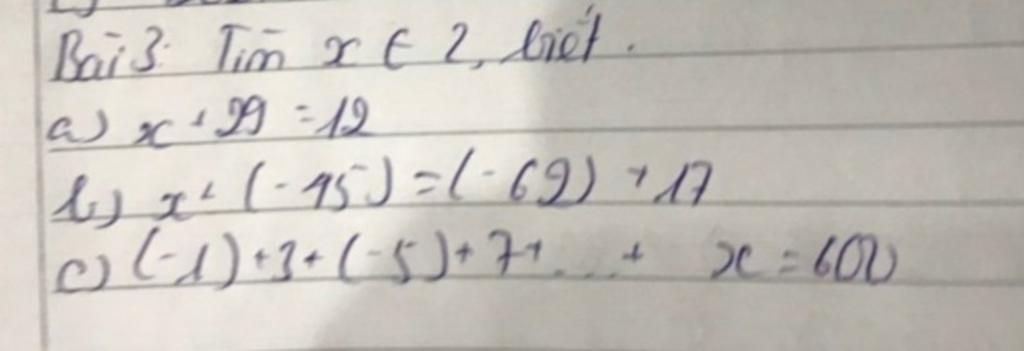 Bài 3: Tìm x ∈ Z, biết.
a) x + 29 = 12
b) x + (-45) = (-62) + 17
c) (-1) + 3 + (-5) + 7 + ... + x = 600